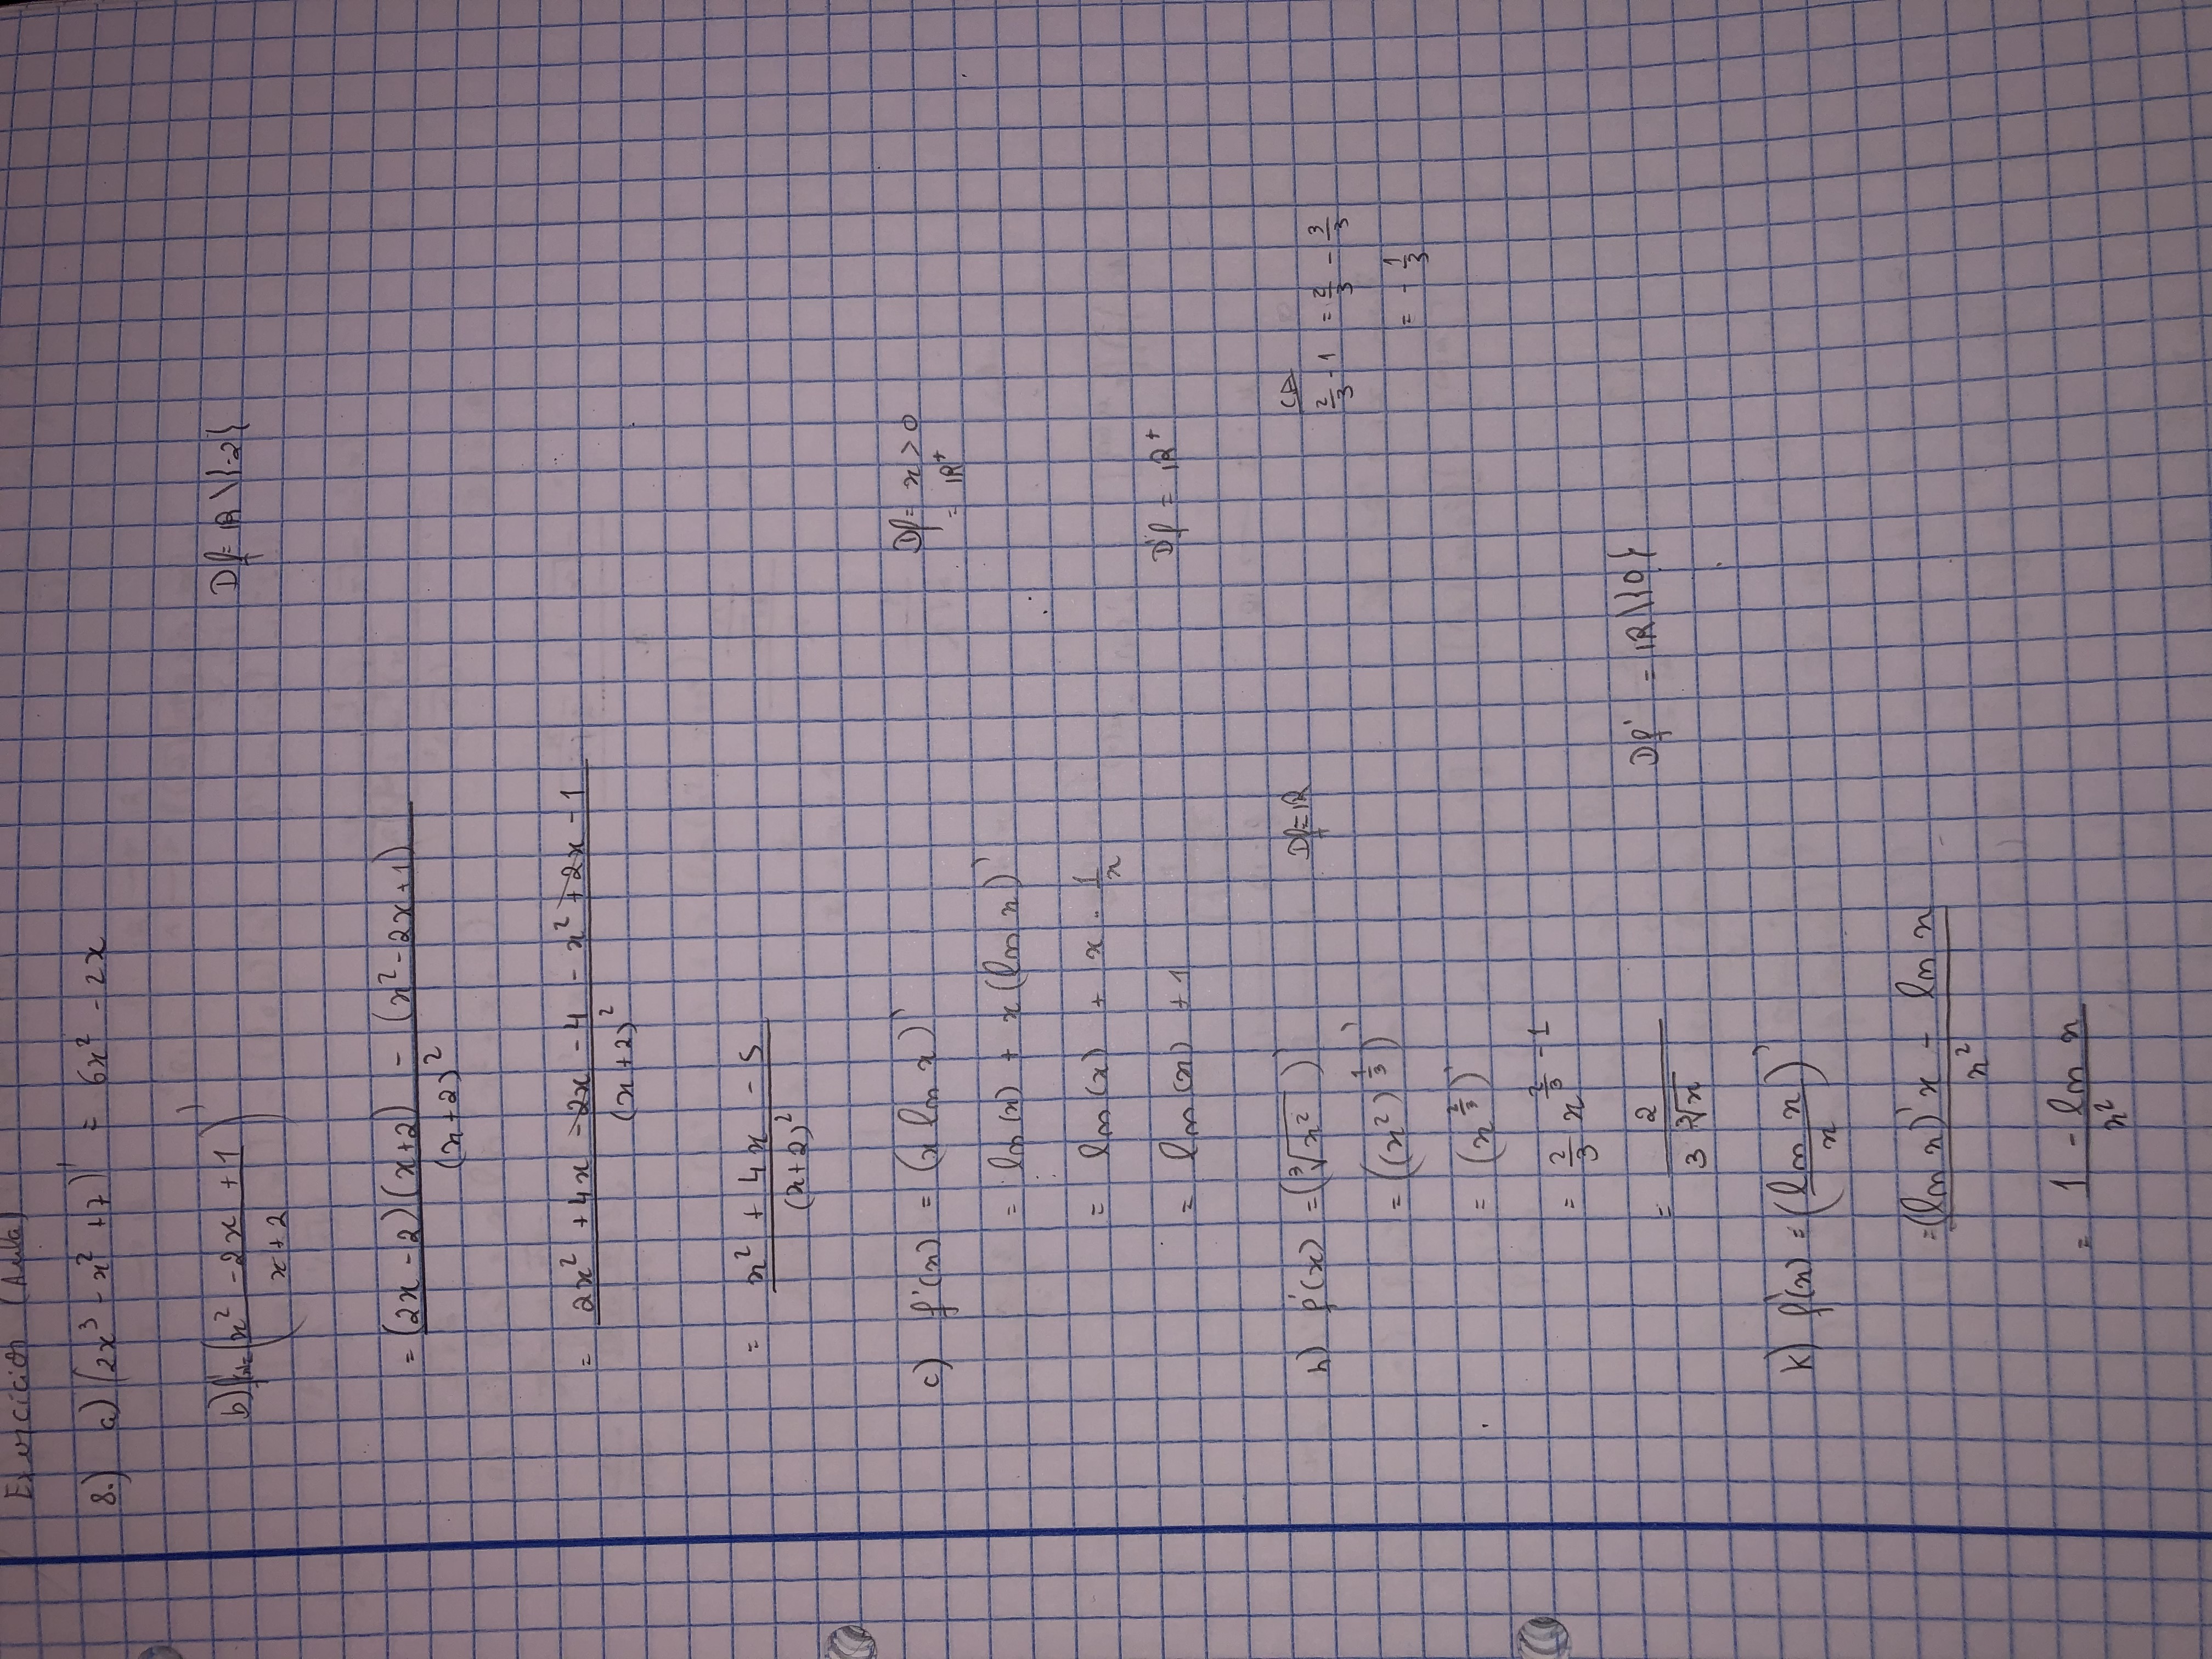 Exercícios (Aula)
8.) a) (2x³ - x² + 7)' = 6x² - 2x
b) f'(x)= ((x² - 2x + 1)/(x + 2))' Df = ℝ \ {-2}
= ((2x - 2)(x + 2) - (x² - 2x + 1))/(x + 2)²
= (2x² + 4x - 2x - 4 - x² + 2x - 1)/(x + 2)²
= (x² + 4x - 5)/(x + 2)²
c) f'(x) = (x ln x)' Df = x > 0
= ℝ⁺
= ln(x) + x (ln x)'
= ln(x) + x · 1/x
= ln(x) + 1 D'f = ℝ⁺
h) f'(x) = (∛x²)' Df = ℝ CA
2/3 - 1 = 2/3 - 3/3
= ((x²)^(1/3))' = - 1/3
= (x^(2/3))'
= 2/3 x^(2/3 - 1)
= 2/(3 ∛x) Df' = ℝ \ {0}
k) f'(x) = (ln x / x)'
= ((ln x)' x - ln x)/x²
= (1 - ln x)/x²